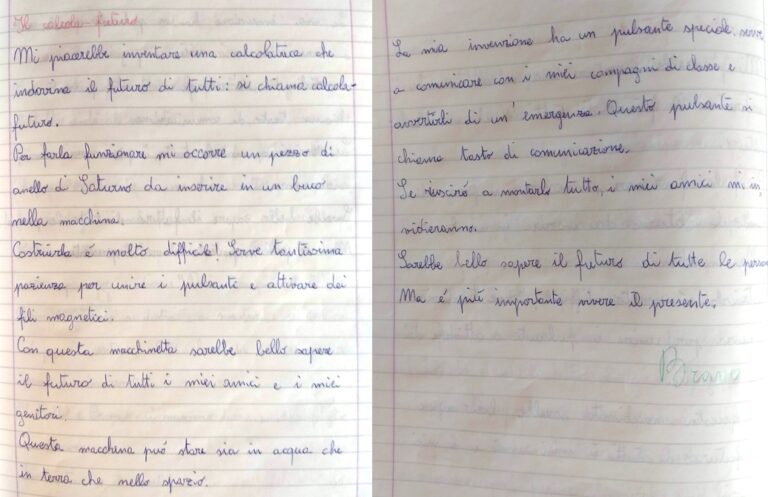 Il calcola-futuro
Mi piacerebbe inventare una calcolatrice che
indovina il futuro di tutti: si chiama calcola-
futuro.
Per farla funzionare mi occorre un pezzo di
anello di Saturno da inserire in un buco
nella macchina.
Costruirla é molto difficile! Serve tantissima
pazienza per unire i pulsanti e attivare dei
fili magnetici.
Con questa macchinetta sarebbe bello sapere
il futuro di tutti i miei amici e i miei
genitori.
Questa macchina puó stare sia in acqua che
in terra che nello spazio.
La mia invenzione ha un pulsante speciale, serve
a comunicare con i miei compagni di classe e
avvertirli di un'emergenza. Questo pulsante si
chiama tasto di comunicazione.
Se riusciró a montarlo tutto, i miei amici mi in
vidieranno.
Sarebbe bello sapere il futuro di tutte le person
Ma é piú importante vivere il presente.